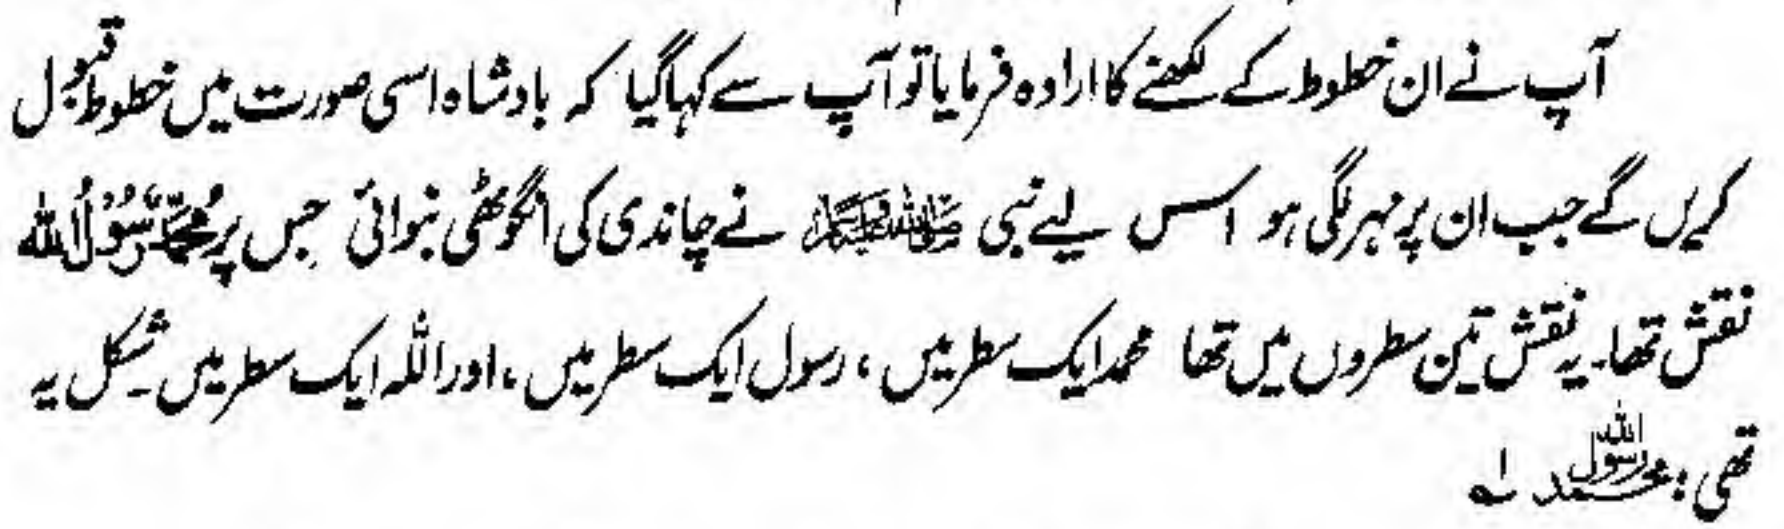 آپ نے ان خطوط کے لکھنے کا ارادہ فرمایا تو آپ سے کہا گیا کہ بادشاہ اسی صورت میں خطوط قبول
کریں گے جب ان پر مہر لگی ہو اس لیے نبی ﷺ نے چاندی کی انگوٹھی بنوائی جس پر مُحَمَّدٌ رَّسُوْلُ اللہ
نقش تھا۔ یہ نقش تین سطروں میں تھا محمد ایک سطر میں ، رسول ایک سطر میں ، اور اللہ ایک سطر میں ۔ شکل یہ
تھی : اللہ رسول محمد لہ